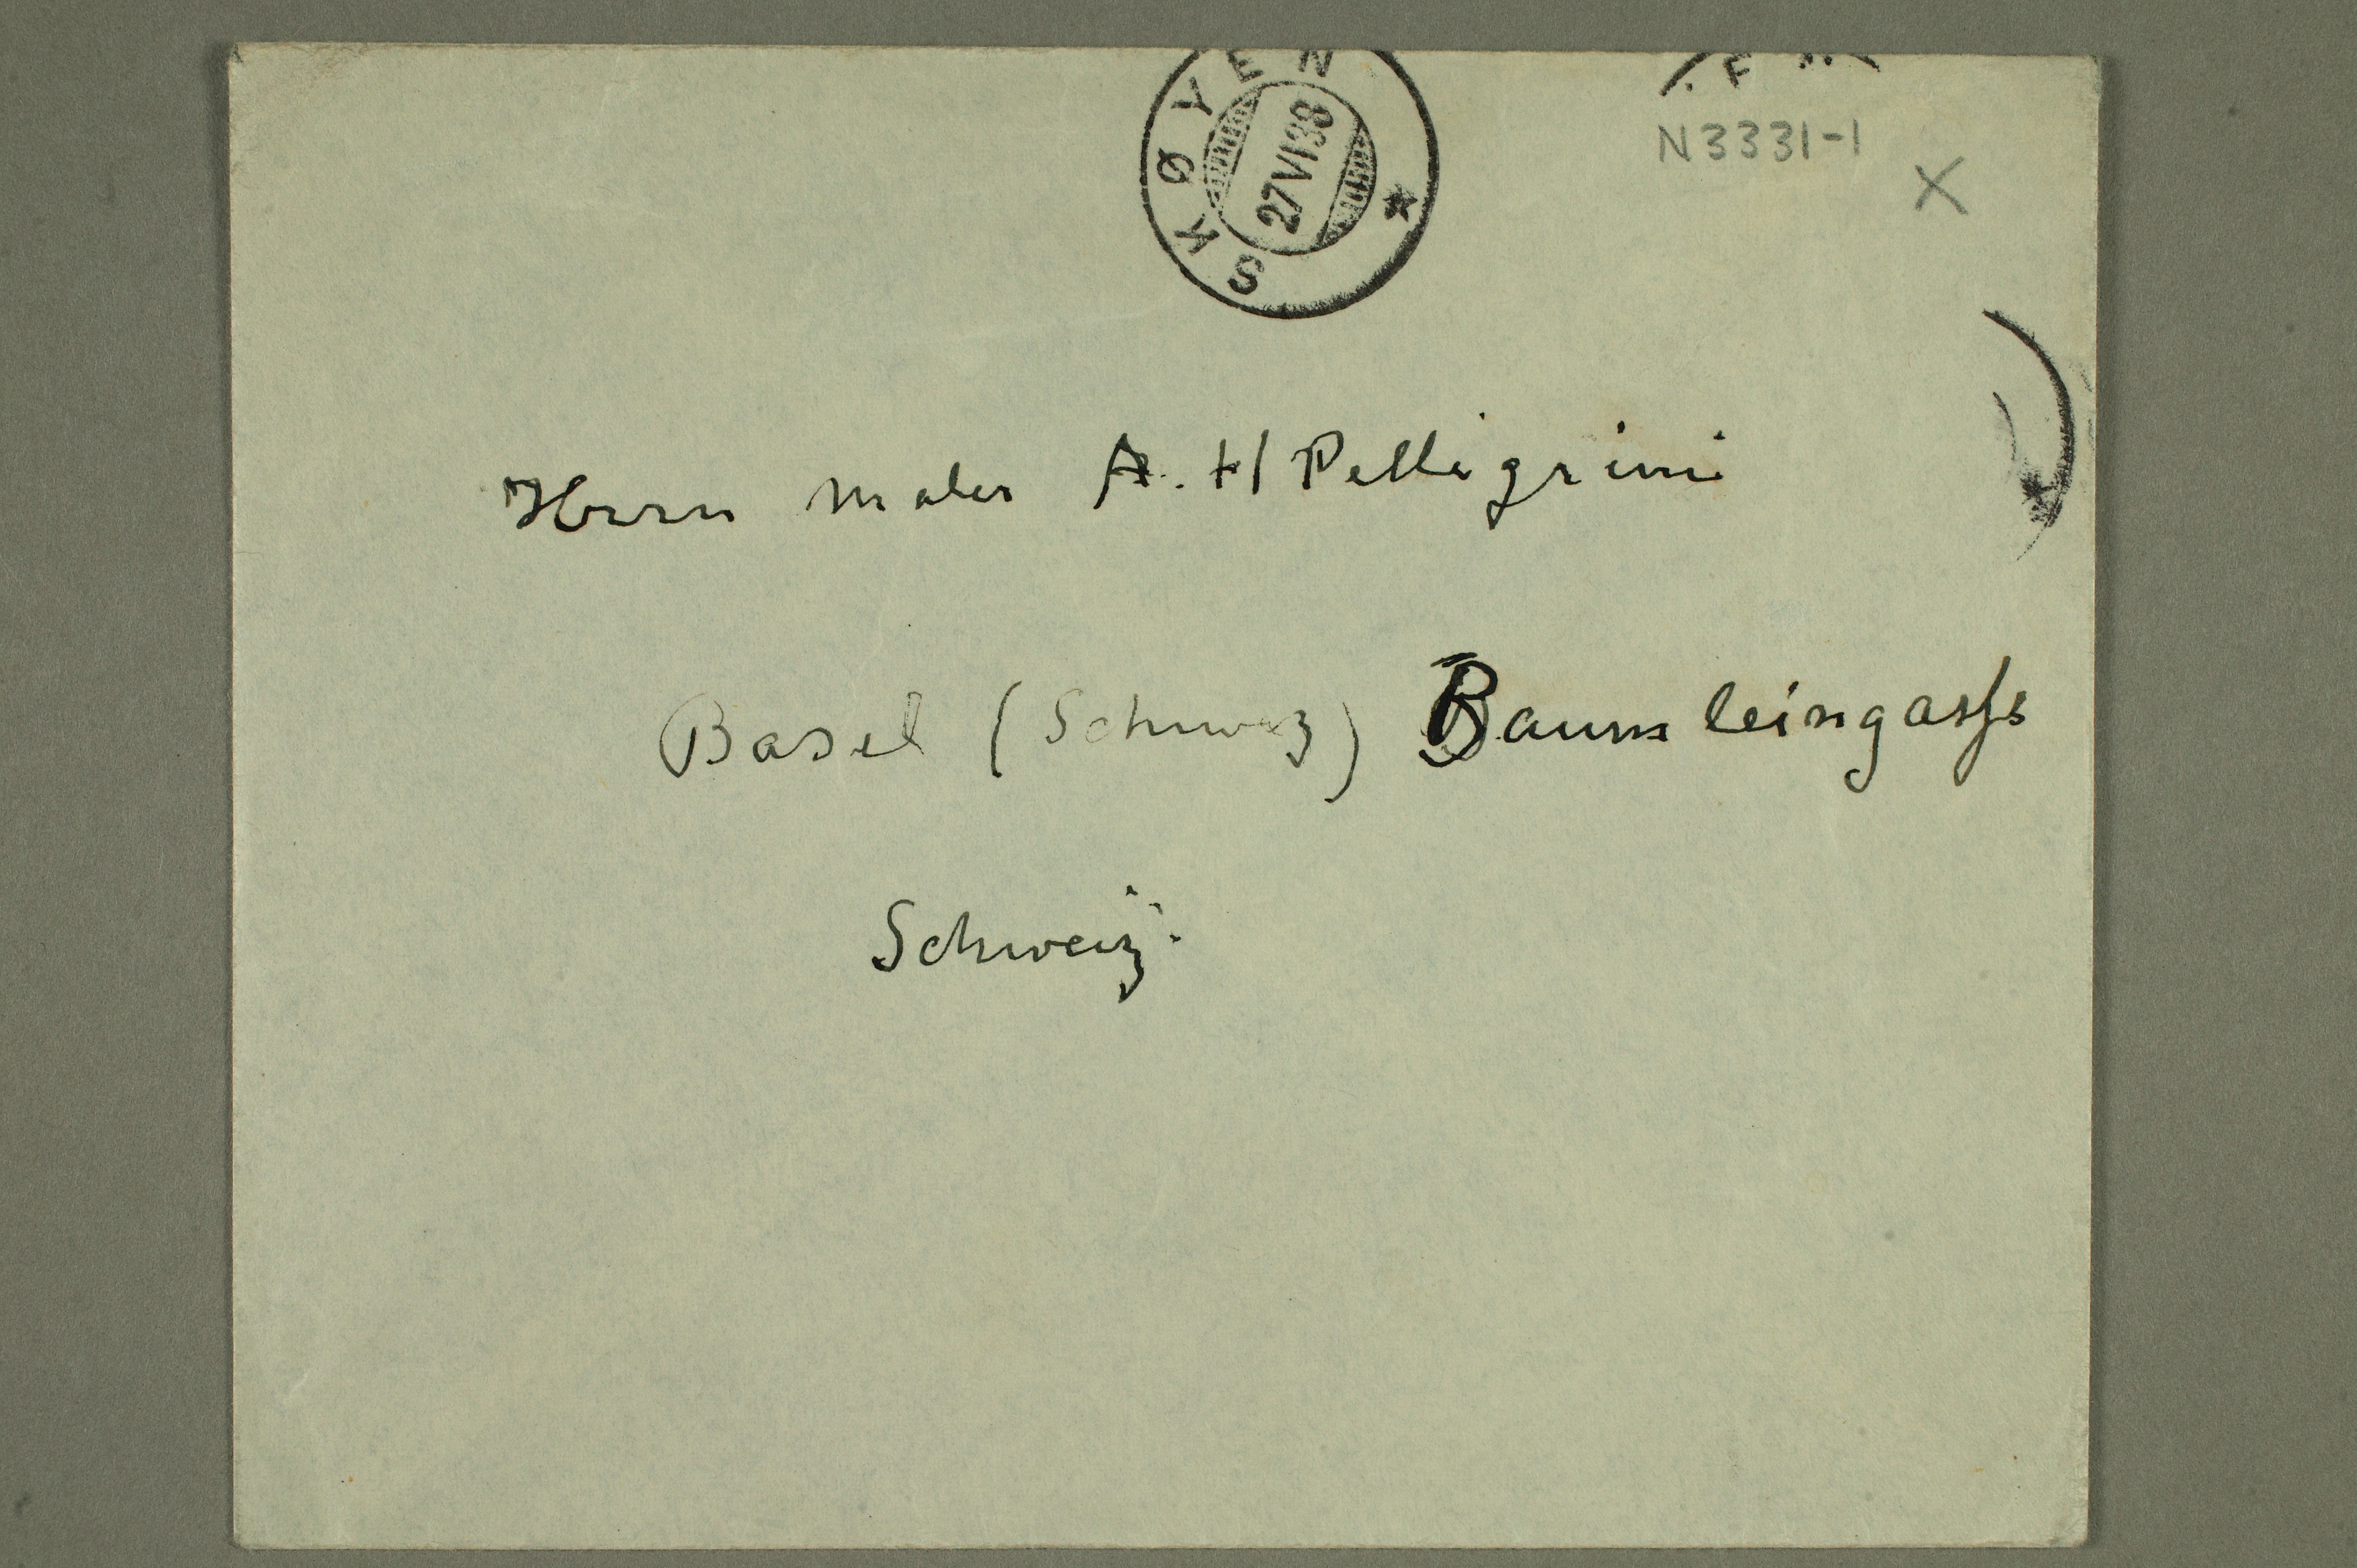 SKØYEN
27 VI 38
N3331-1
X
Herrn Maler A. H Pelligrini
Basel (Schweiz) Baumleingasse
Schweiz